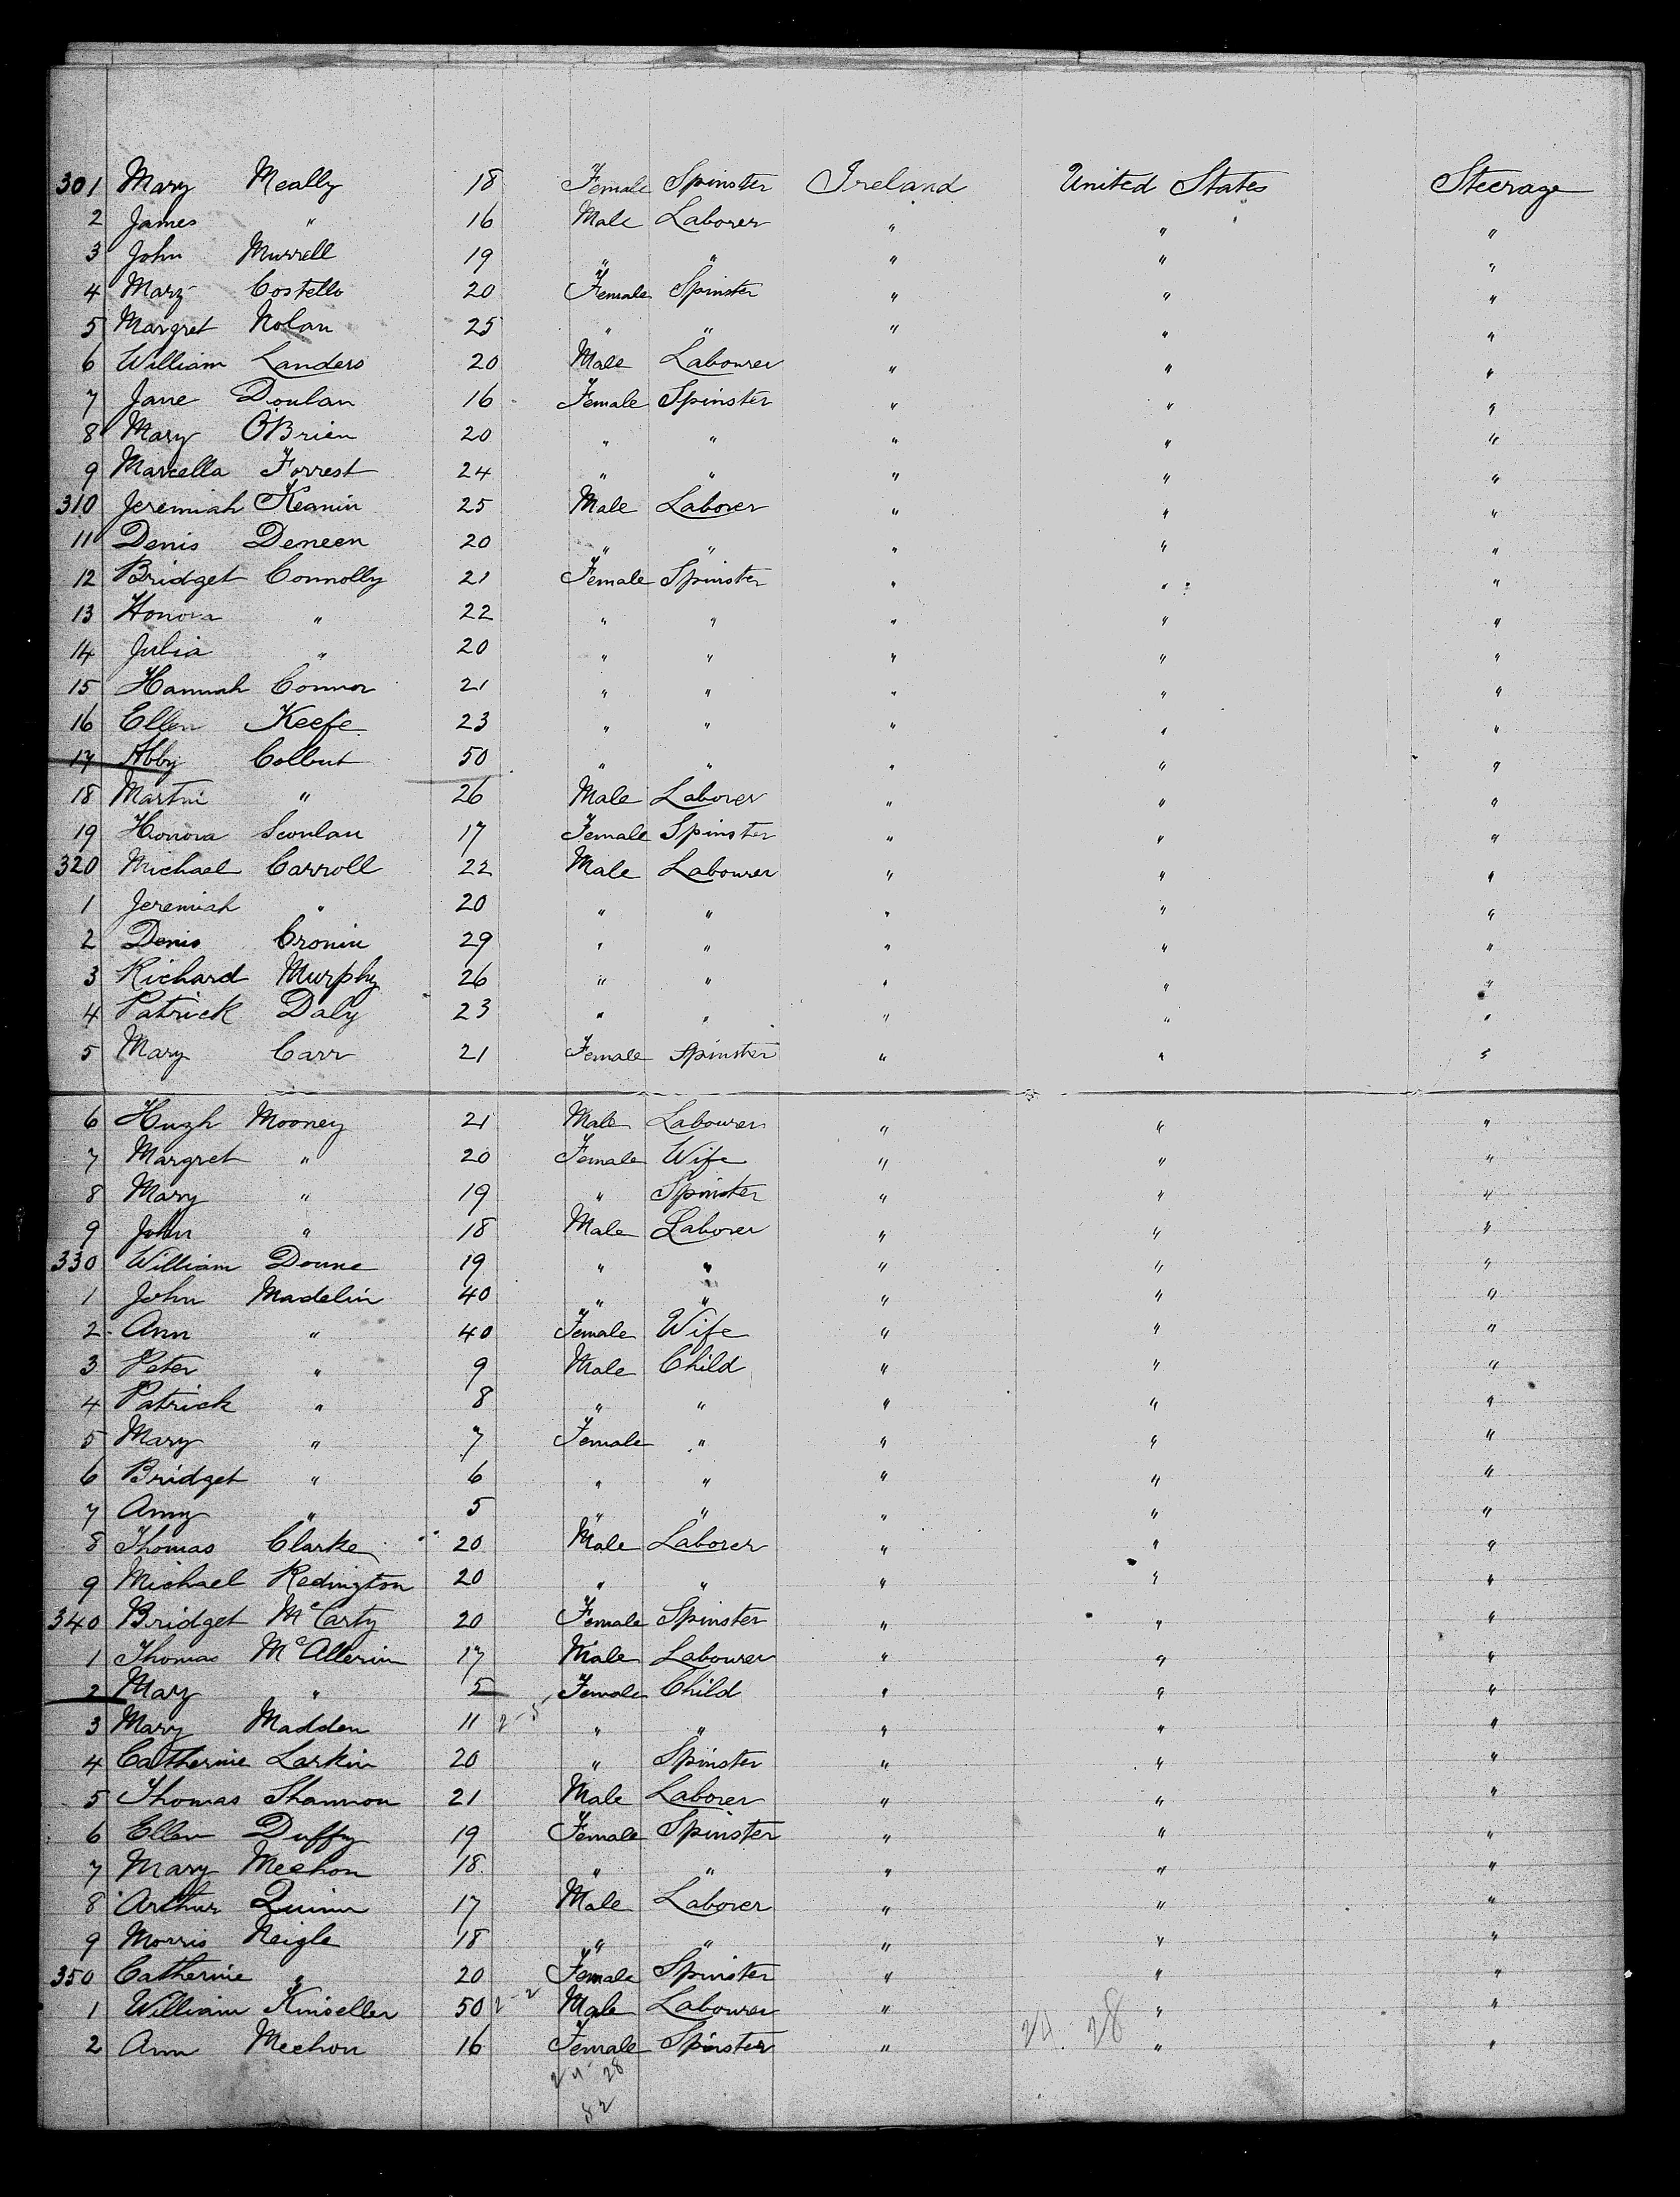 301 Mary Meally 18 Female Spinster Ireland United States Steerage
2 James " 16 Male Laborer " " "
3 John Murrell 19 " " " " "
4 Mary Costello 20 Female Spinster " " "
5 Margret Nolan 25 " " " " "
6 William Landers 20 Male Labourer " " "
7 Jane Doulan 16 Female Spinster " " "
8 Mary O'Brien 20 " " " " "
9 Marcella Forrest 24 " " " " "
310 Jeremiah Keanin 25 Male Laborer " " "
11 Denis Deneen 20 " " " " "
12 Bridget Connolly 21 Female Spinster " " "
13 Honora " 22 " " " " "
14 Julia " 20 " " " " "
15 Hannah Connor 21 " " " " "
16 Ellen Keefe 23 " " " " "
17 Abby Colbut 50 " " " " "
18 Martin " 26 Male Laborer " " "
19 Honora Scanlan 17 Female Spinster " " "
320 Michael Carroll 22 Male Labourer " " "
1 Jeremiah " 20 " " " " "
2 Denis Cronin 29 " " " " "
3 Richard Murphy 26 " " " " "
4 Patrick Daly 23 " " " " "
5 Mary Carr 21 Female Spinster " " "
6 Hugh Mooney 21 Male Labourer " " "
7 Margret " 20 Female Wife " " "
8 Mary " 19 " Spinster " " "
9 John " 18 Male Laborer " " "
330 William Dunne 19 " " " " "
1 John Madelin 40 " " " " "
2 Ann " 40 Female Wife " " "
3 Peter " 9 Male Child " " "
4 Patrick " 8 " " " " "
5 Mary " 7 Female " " " "
6 Bridget " 6 " " " " "
7 Anny " 5 " " " " "
8 Thomas Clarke 20 Male Laborer " " "
9 Michael Redington 20 " " " " "
340 Bridget McCarty 20 Female Spinster " " "
1 Thomas McAllerin 17 Male Labourer " " "
2 Mary " 5 Female Child " " "
3 Mary Madden 11 " " " " "
4 Catherine Larkin 20 " Spinster " " "
5 Thomas Shannon 21 Male Laborer " " "
6 Ellen Duffy 19 Female Spinster " " "
7 Mary Meehon 18 " " " " "
8 Arthur Quinn 17 Male Laborer " " "
9 Morris Neigle 18 " " " " "
350 Catherine " 20 Female Spinster " " "
1 William Kinseller 50 2-2 Male Labourer " " "
2 Ann Meehon 16 Female Spinster " 24 28 " "
24 28
52